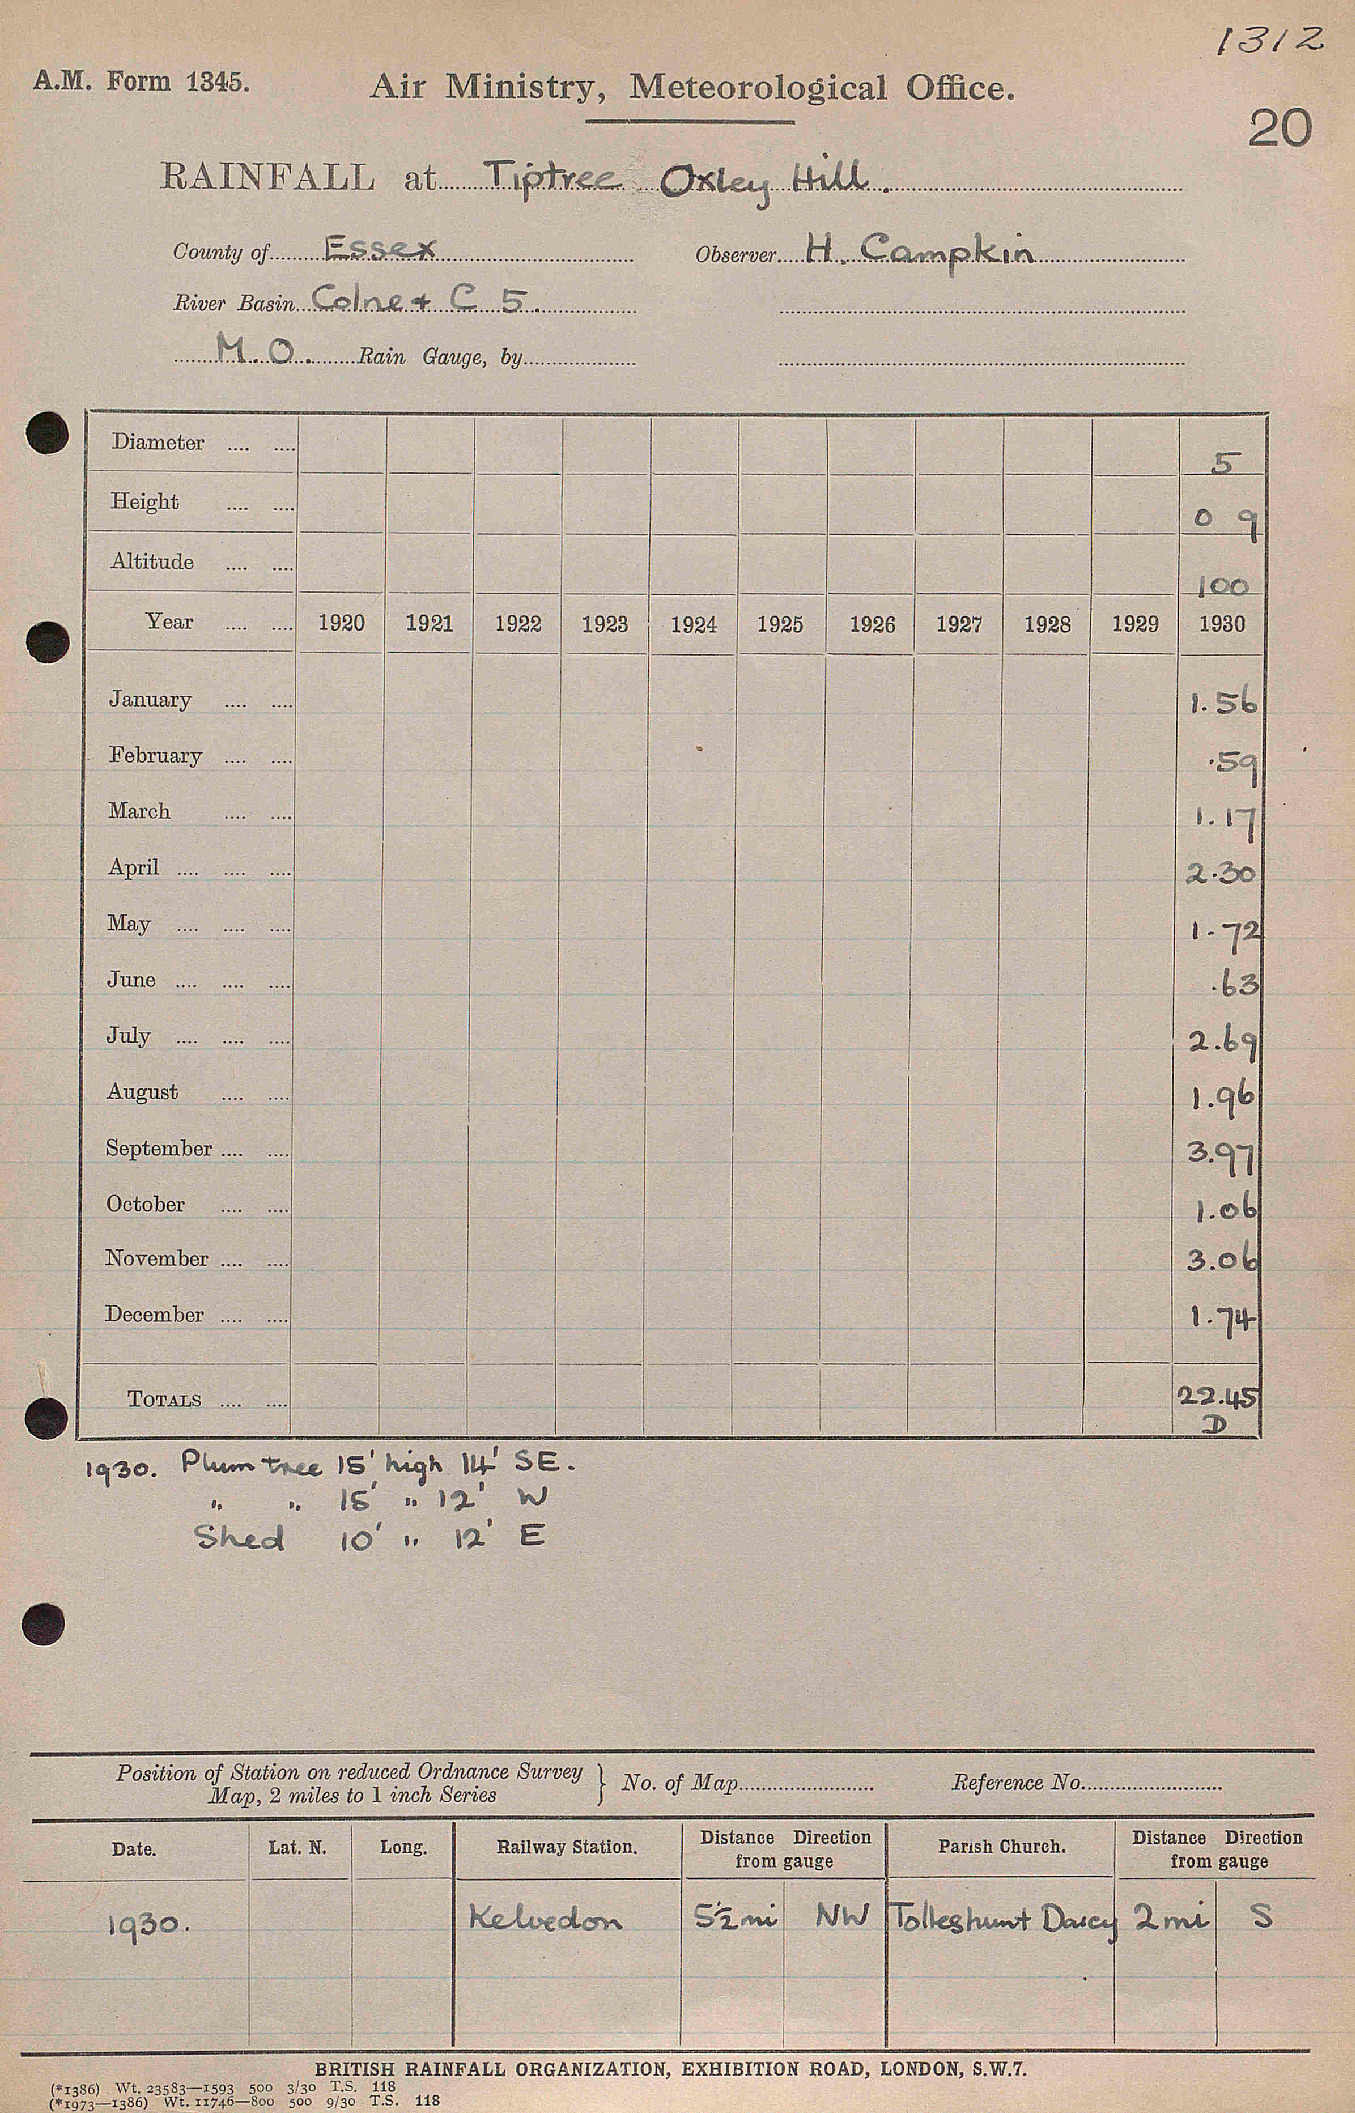 1312
A.M. Form 1345.
Air Ministry, Meteorological Office.
20
RAINFALL at Tiptree Oxley Hill.
County of Essex Observer H. Campkin
River Basin Colne + C 5.
M.O. Rain Gauge, by
Diameter .... .... 5
Height .... .... 0 9
Altitude .... .... 100
Year .... .... 1920 1921 1922 1923 1924 1925 1926 1927 1928 1929 1930
January .... .... 1.56
February .... .... .59
March .... .... 1.17
April .... .... .... 2.30
May .... .... .... 1.72
June .... .... .... .63
July .... .... .... 2.69
August .... .... 1.96
September .... .... 3.97
October .... .... 1.06
November .... .... 3.06
December .... .... 1.74
TOTALS .... .... 22.45
D
1930. Plum tree 15' high 14' SE.
" " 15' " 12' W
Shed 10' " 12' E
Position of Station on reduced Ordnance Survey
Map, 2 miles to 1 inch Series } No. of Map Reference No.
Date. Lat. N. Long. Railway Station. Distance Direction from gauge Parish Church. Distance Direction from gauge
1930. Kelvedon 5½ mi NW Tolleshunt Darcy 2 mi S
BRITISH RAINFALL ORGANIZATION, EXHIBITION ROAD, LONDON, S.W.7.
(*1386) Wt. 23583—1593 500 3/30 T.S. 118
(*1973—1386) Wt. 11746—800 500 9/30 T.S. 118